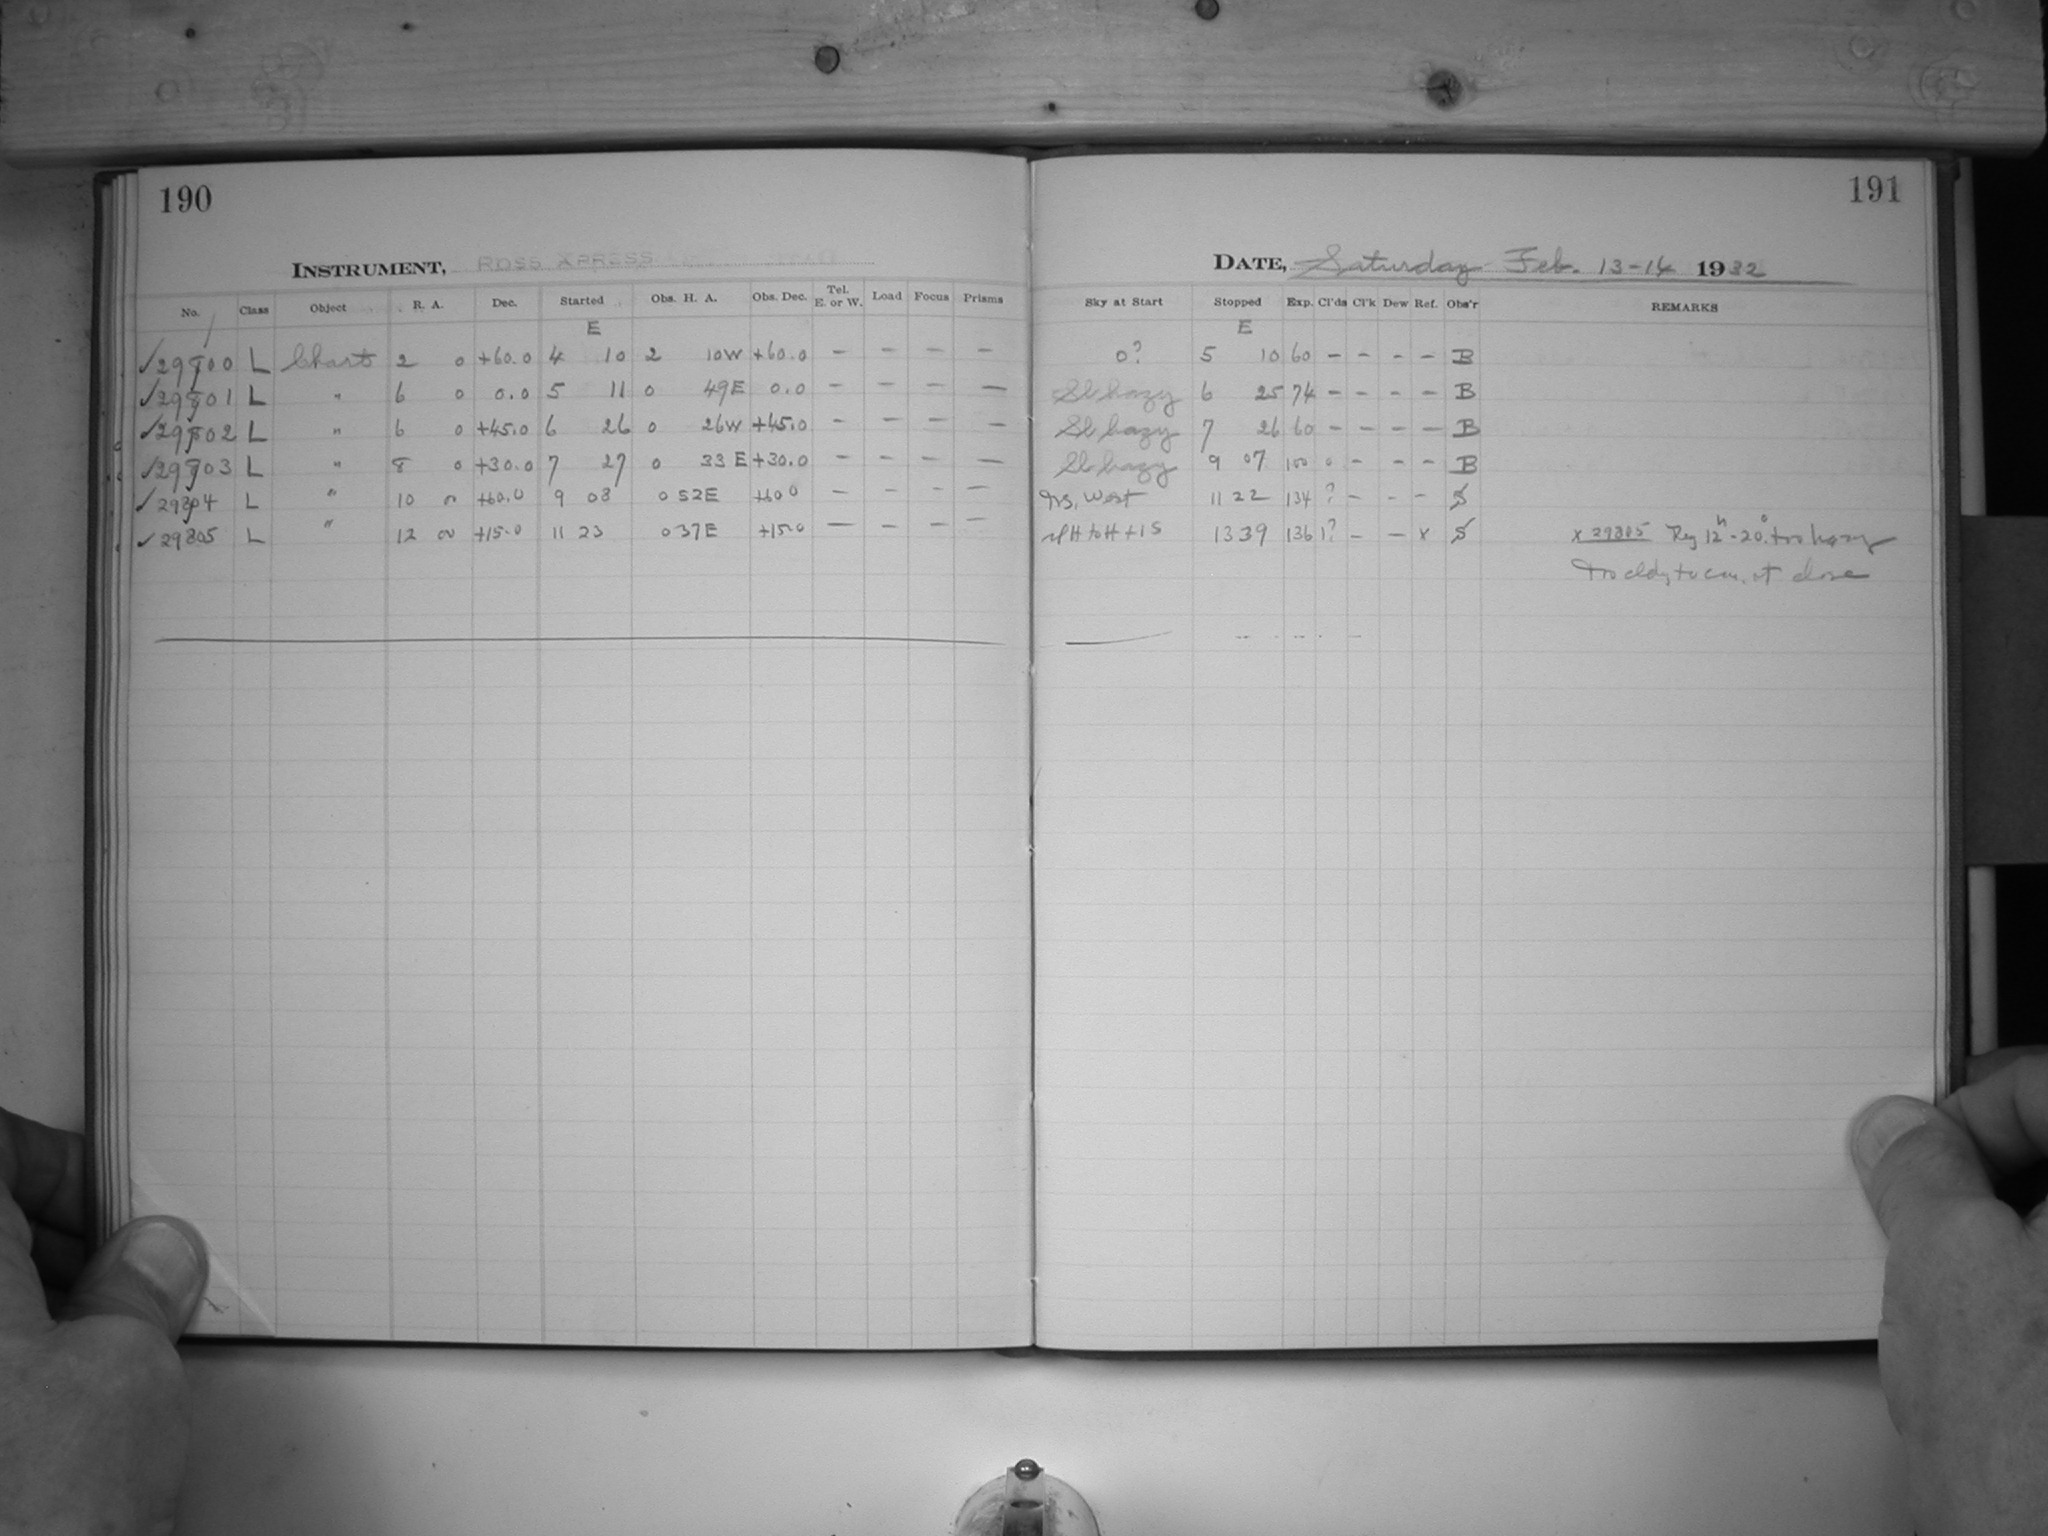 190
INSTRUMENT, ROSS XPRESS
No. Class Object R. A. Dec. Started Obs. H. A. Obs. Dec. Tel. E. or W. Load Focus Prisms
E
✓29800 L Chart 2 0 +60.0 4 10 2 10W +60.0 — — — —
✓29801 L " 6 0 0.0 5 11 0 49E 0.0 — — — —
✓29802 L " 6 0 +45.0 6 26 0 26W +45.0 — — — —
✓29803 L " 8 0 +30.0 7 27 0 33E +30.0 — — — —
✓29804 L " 10 0 +60.0 9 08 0 52E +60 0 — — — —
✓29805 L " 12 00 +15.0 11 23 0 37E +15.0 — — — —
191
DATE, Saturday Feb. 13-14 1932
Sky at Start Stopped Exp. Cl'ds Cl'k Dew Ref. Obs'r REMARKS
E
0? 5 10 60 — — — — B
Sl hazy 6 25 74 — — — — B
Sl hazy 7 26 60 — — — — B
Sl hazy 9 07 100 0 — — — B
West 11 22 134 ? — — — S
H to H + 1S 13 39 136 1? — — x S x 29805 Reg 12h -20° too hazy
Too cldy to con. at close